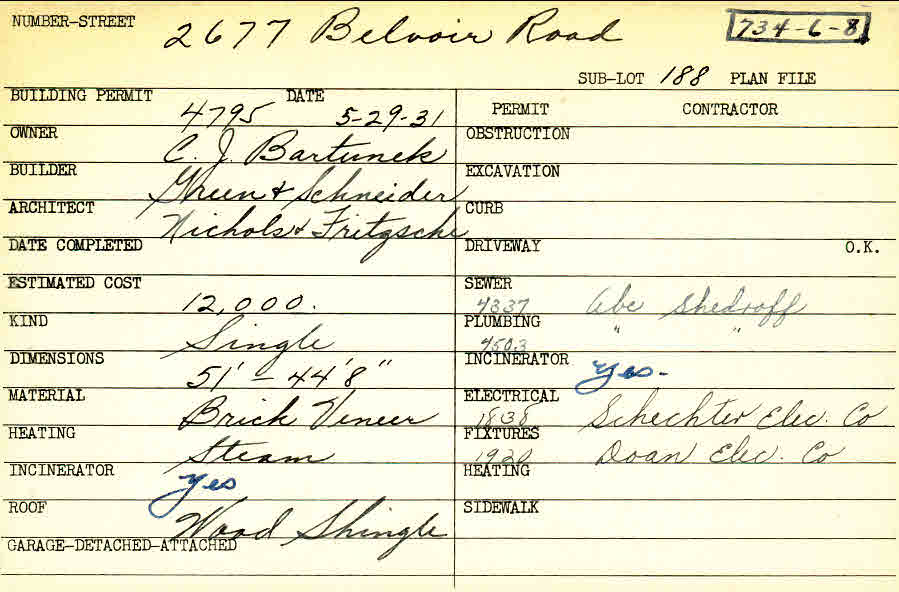 NUMBER-STREET 2677 Belvoir Road 734-6-8
SUB-LOT 188 PLAN FILE
BUILDING PERMIT 4795 DATE 5-29-31
OWNER C. J. Bartunek
BUILDER Green & Schneider
ARCHITECT Nichols & Fritzsche
DATE COMPLETED
ESTIMATED COST 12,000.
KIND Single
DIMENSIONS 51' - 44'8"
MATERIAL Brick Veneer
HEATING Steam
INCINERATOR yes
ROOF Wood Shingle
GARAGE-DETACHED-ATTACHED
PERMIT CONTRACTOR
OBSTRUCTION
EXCAVATION
CURB
DRIVEWAY O.K.
SEWER 4337 Abe Shedroff
PLUMBING 4503 " "
INCINERATOR yes-
ELECTRICAL 1838 Schechter Elec. Co
FIXTURES 1920 Doan Elec. Co
HEATING
SIDEWALK